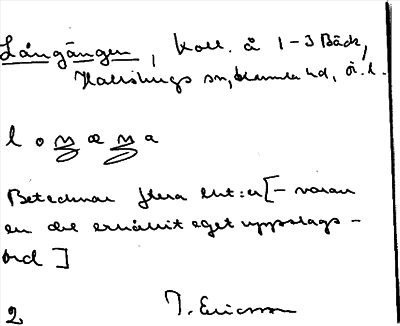 Långängen, koll. å 1-3 Bäck,
Hällestads sn, 
l o m æ m a
Betecknar flera enh:er [- varav
en del erhållit eget uppslags-
ord]
2 J. Ericsson